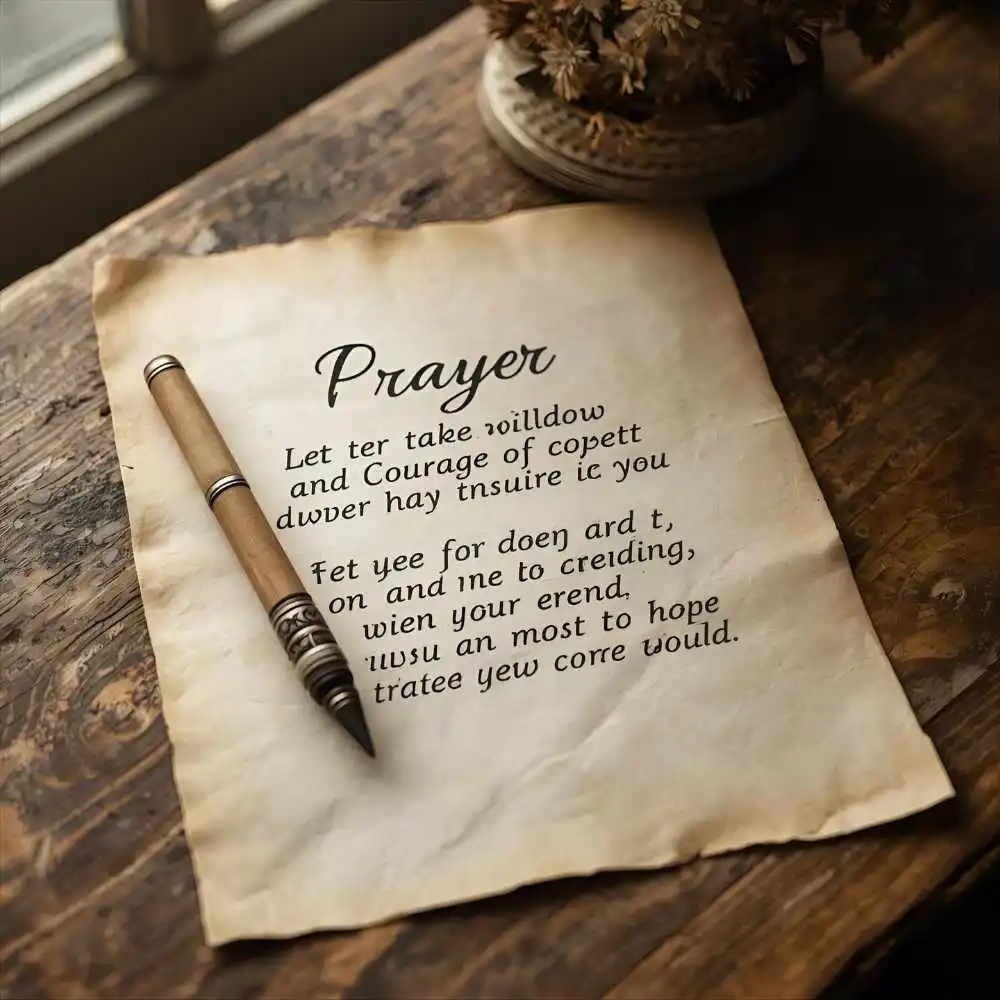 Prayer
Let ter take willdow
and Courage of copett
dwver hay tnsuire ic you
Fet yee for doeŋ ard t,
on and ıne to creıding,
wien your erend,
an most to hope
tratee yew corre would.